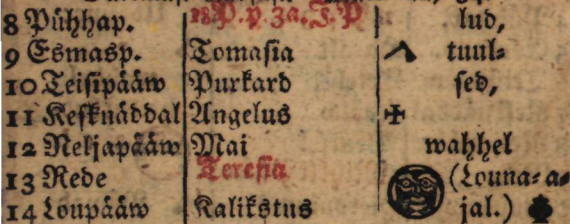 8 Pühhap. 18 P. p. 3a. J. P lud,
9 Esmasp. Tomasia tuul⸗
10 Teisipääw Purkard sed,
11 Kesknäddal Angelus ✠
12 Neljapääw Mai wahhel
13 Rede Teresia (Louna⸗a⸗
14 Loupääw Kalikstus jal.)